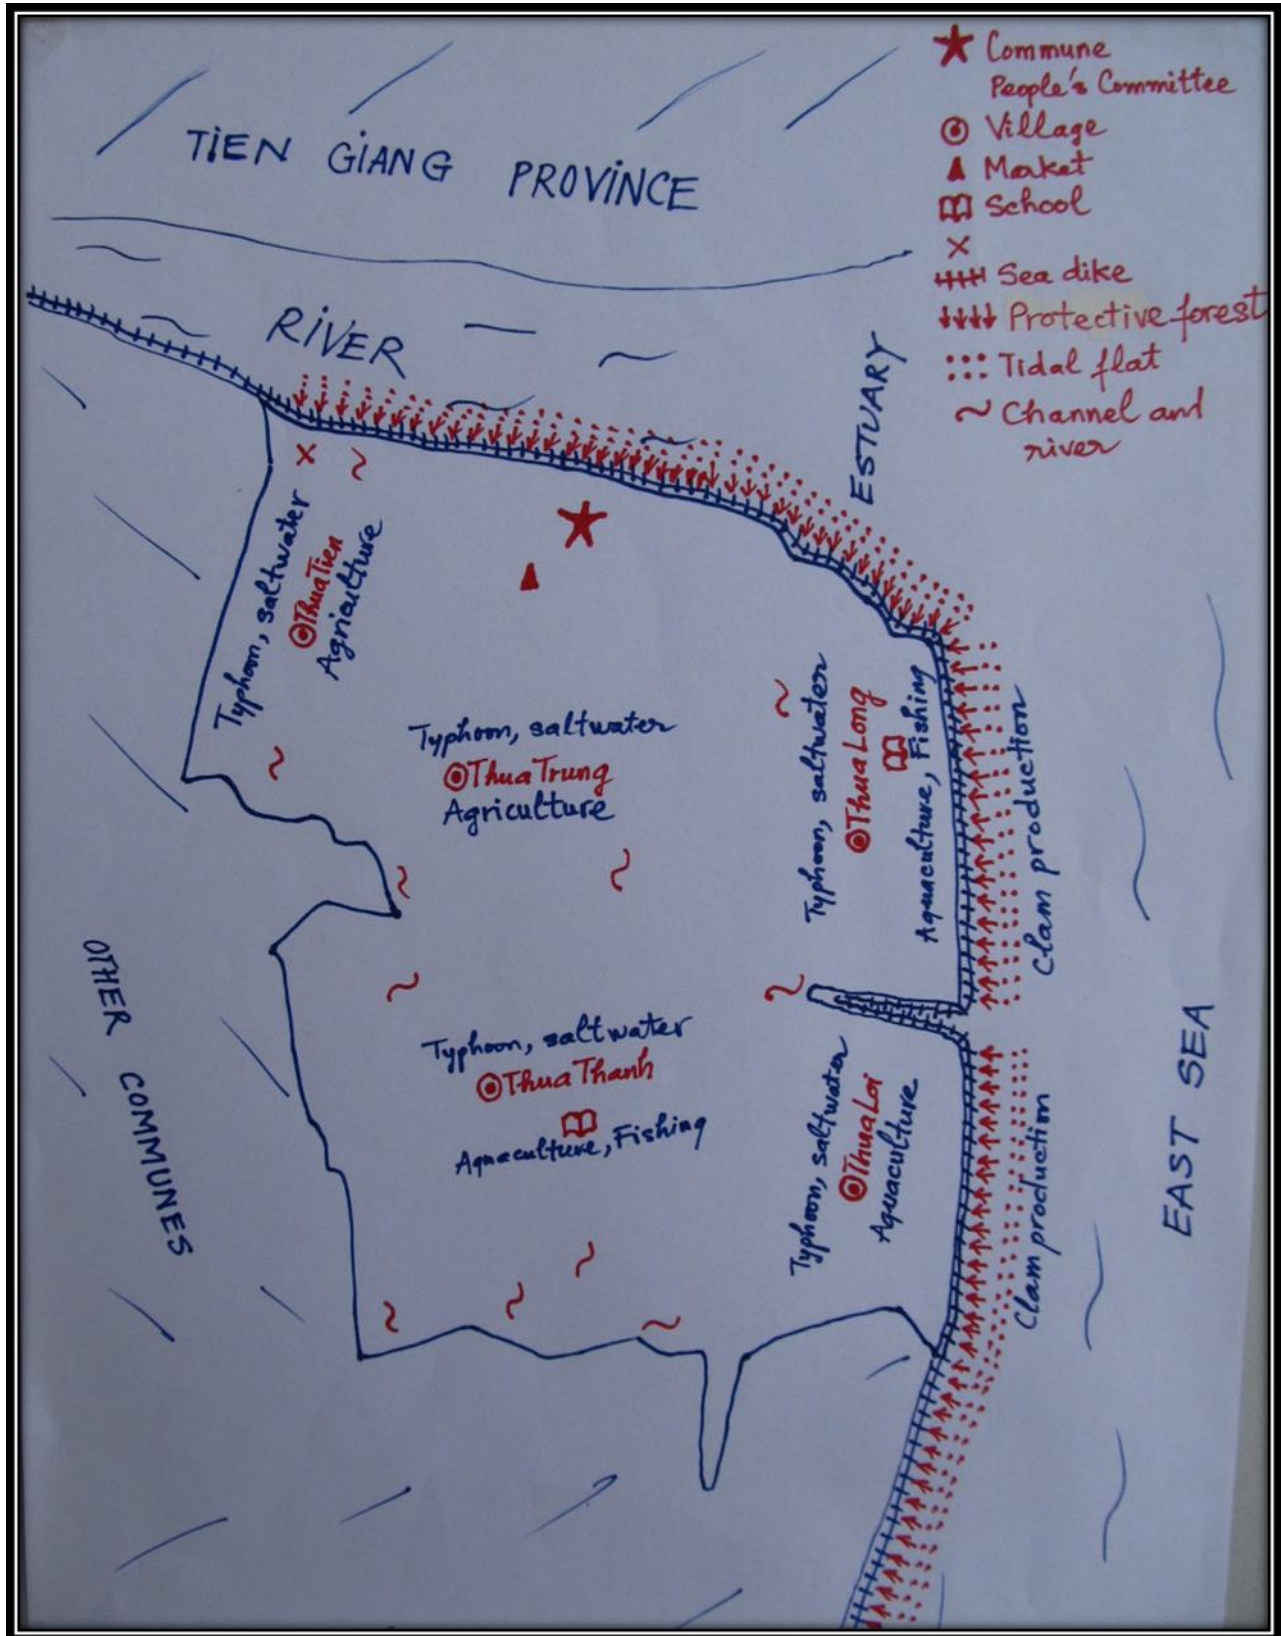 Commune
People's Committee
Village
Market
School
Sea dike
Protective forest
Tidal flat
Channel and
river
TIEN GIANG PROVINCE
RIVER
ESTUARY
Typhoon, saltwater
Thua Tien
Agriculture
Typhoon, saltwater
Thua Trung
Agriculture
Typhoon, saltwater
Thua Long
Aquaculture, Fishing
Clam production
Typhoon, saltwater
Thua Thanh
Aquaculture, Fishing
Typhoon, saltwater
Thua Loi
Aquaculture
Clam production
OTHER COMMUNES
EAST SEA